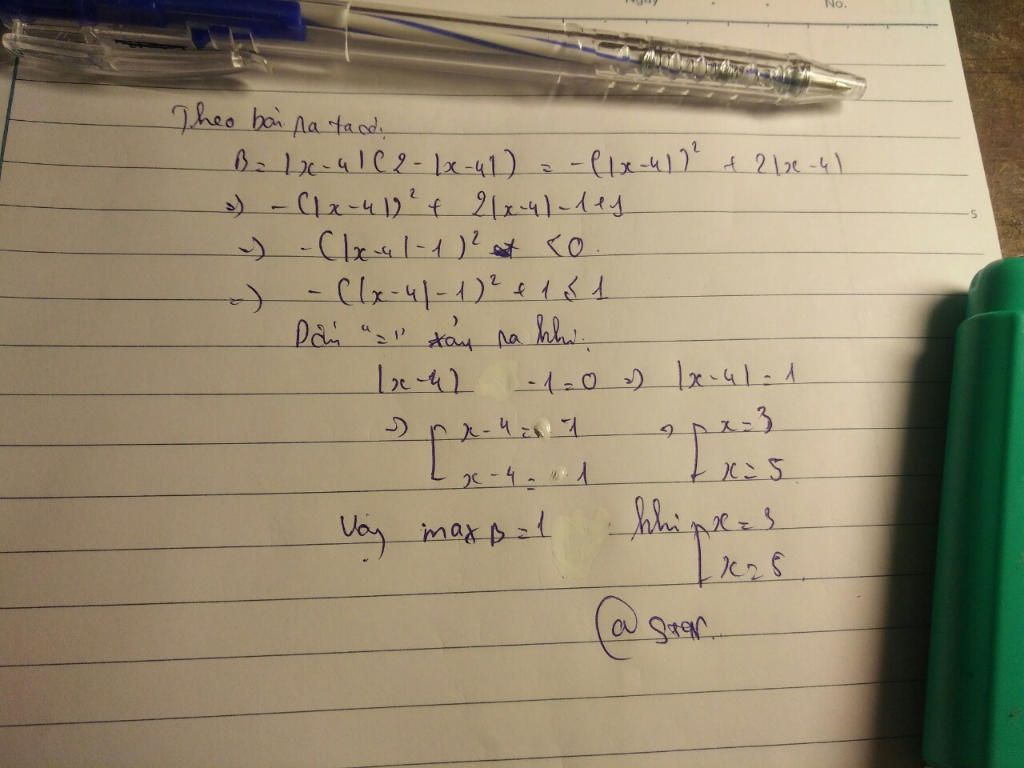 Ngày . . No.
Theo bài ra ta có:
B = |x-4|(2-|x-4|) = -(|x-4|)² + 2|x-4|
=) -(|x-4|)² + 2|x-4|-1+1
=) -(|x-4|-1)² < 0.
=) -(|x-4|-1)² + 1 ≤ 1
5
Dấu "=" xảy ra khi:
|x-4| -1=0 =) |x-4| = 1
=) [ x-4 = -1 =) [ x=3
x-4 = 1 x=5
Vậy max B = 1 khi [ x=3
x=5
@